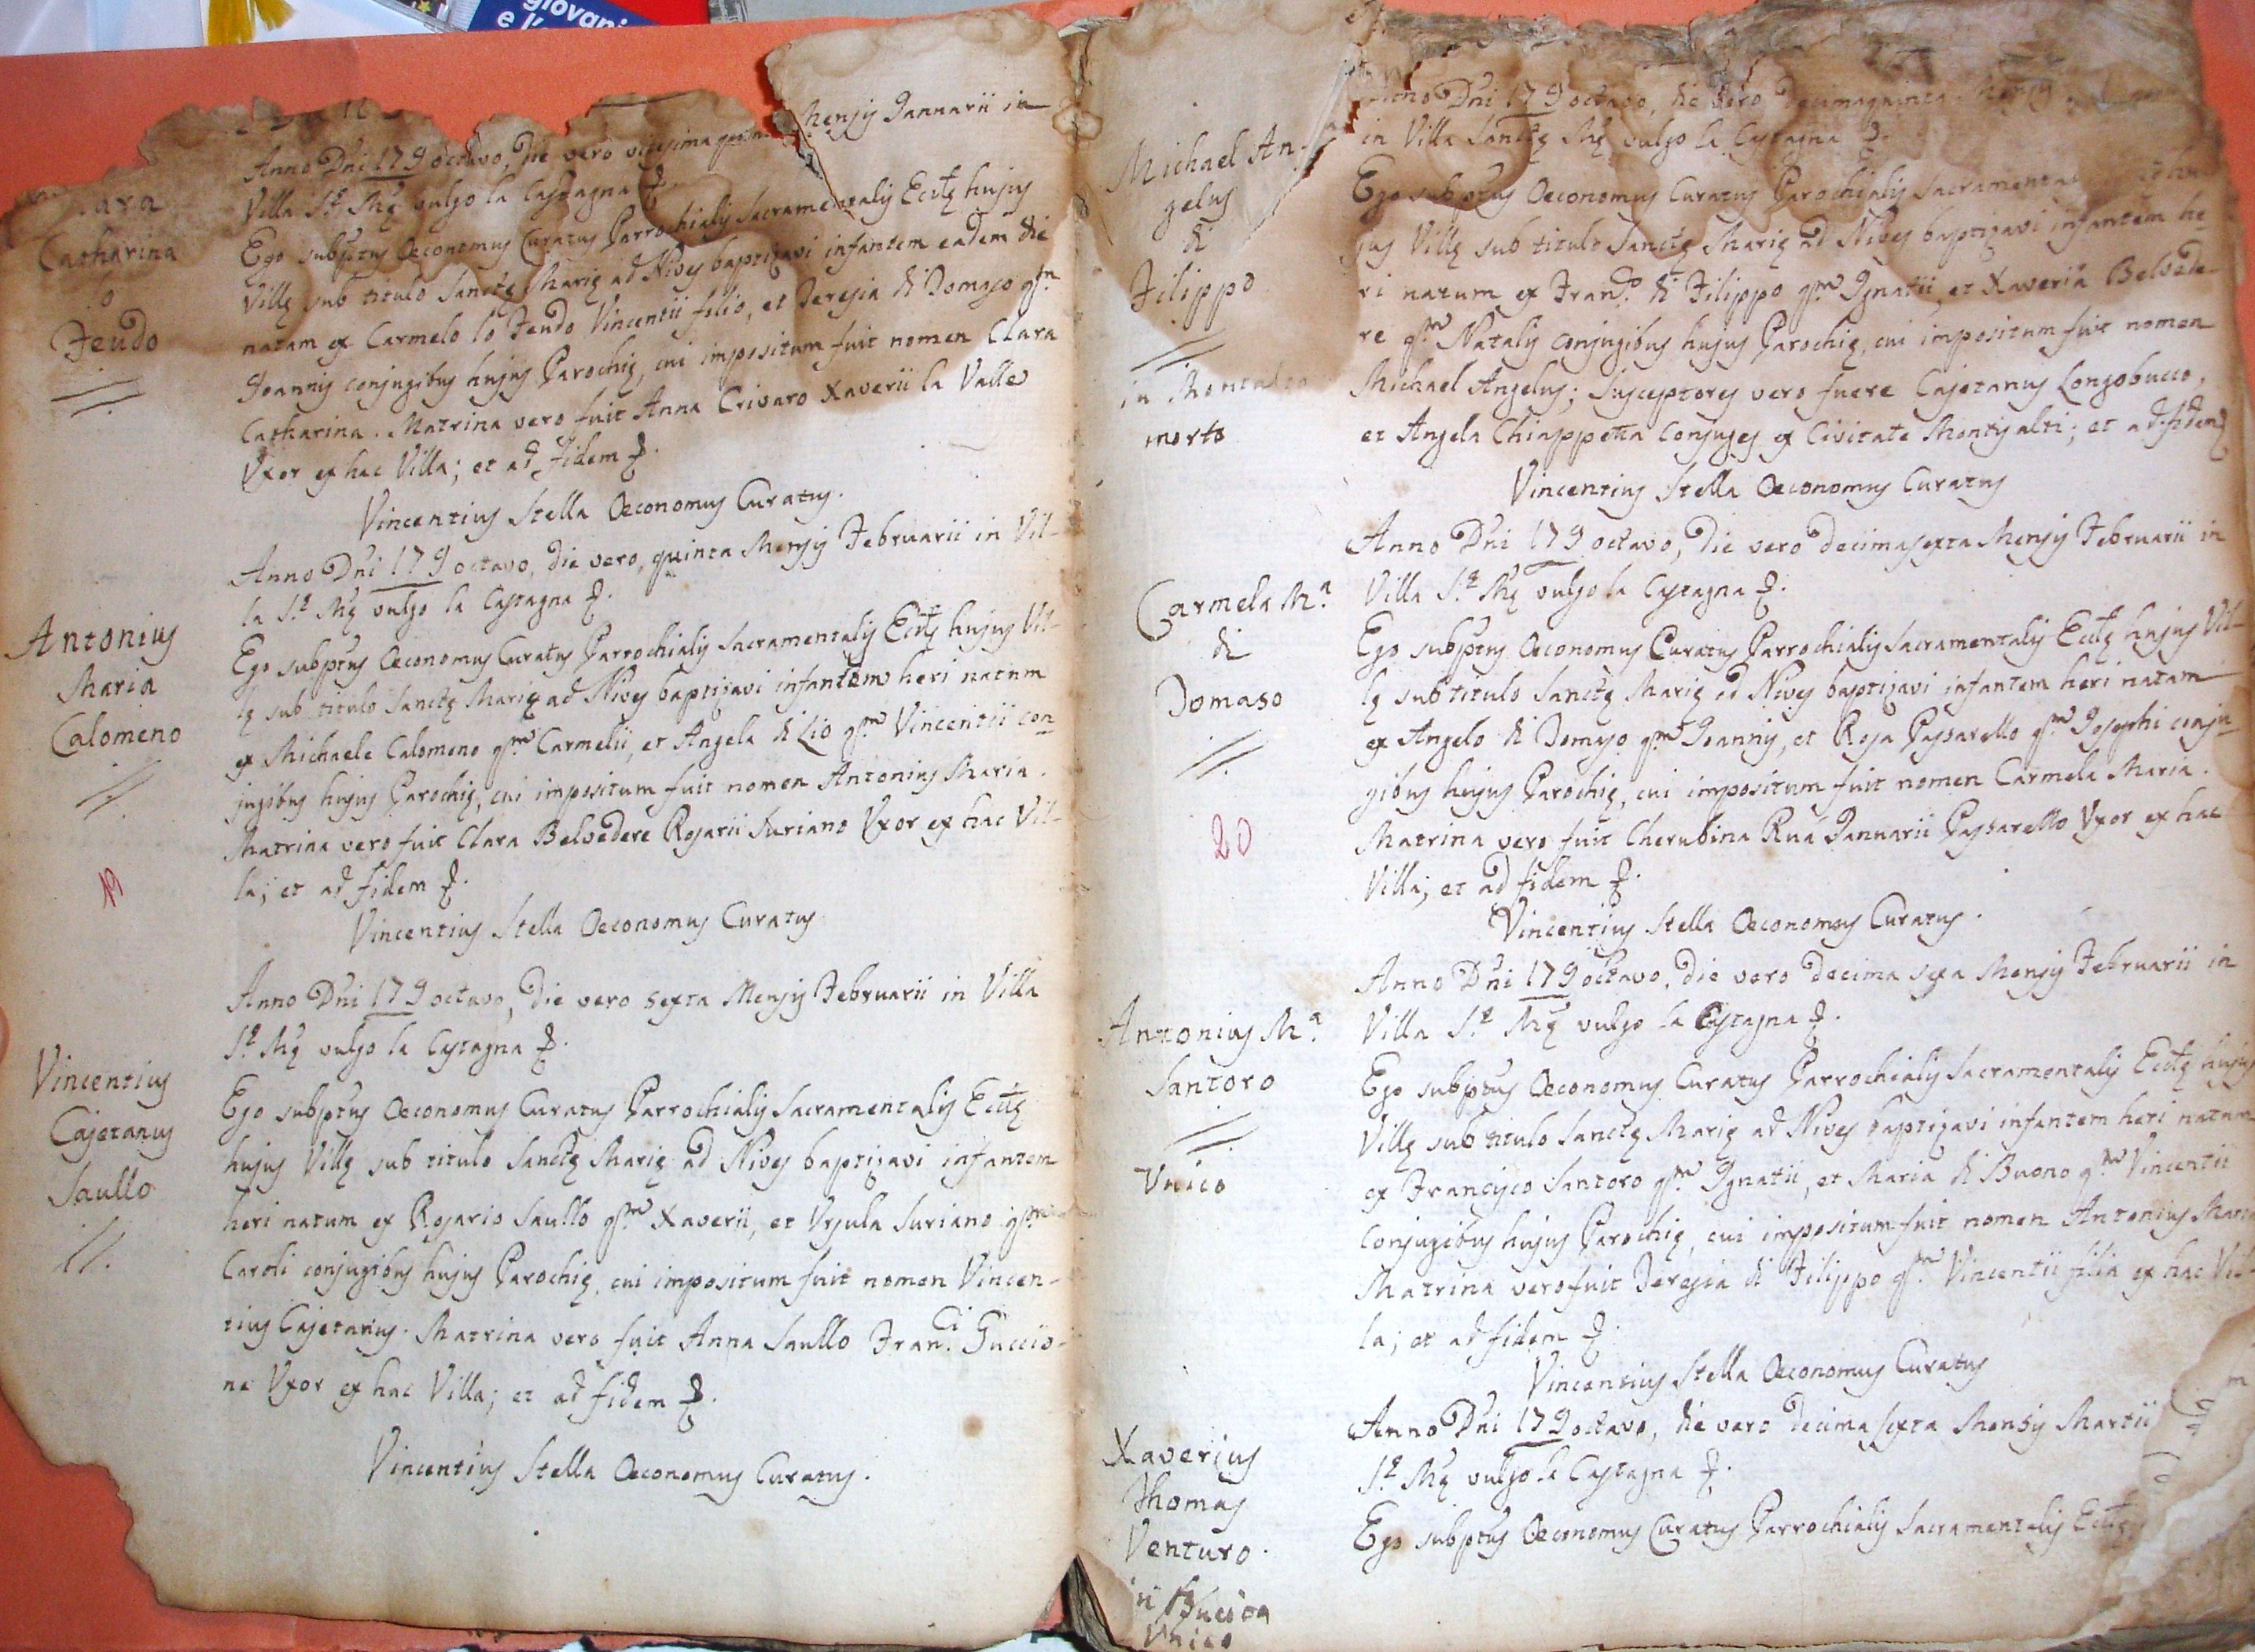 giovani
e l'
Clara
Catharina
lo
Feudo
Anno Dñi 179octavo, die vero vicesima Mensis Januarii in
Villa S.ę Mę vulgo la Castagna
Ego subptus Oeconomus Curatus Parrochialis Sacramentalis Ecclę hujus
Villę sub titulo Sanctę Marię ad Nives baptizavi infantem eadem die
natam ex Carmelo lo Feudo Vincentii filio, et Teresia di Tomaso qm
Joannis conjugibus hujus Parochię, cui impositum fuit nomen Clara
Catharina. Matrina vero fuit Anna Crivaro Xaverii la Valle
Uxor ex hac Villa; et ad fidem
Vincentius Stella Oeconomus Curatus.
Antonius
Maria
Calomeno
Anno Dñi 179octavo, die vero, quinta Mensis Februarii in Vil-
la S.ę Mę vulgo la Castagna
Ego subptus Oeconomus Curatus Parrochialis Sacramentalis Ecclę hujus Vil-
lę sub titulo Sanctę Marię ad Nives baptizavi infantem heri natum
ex Michaele Calomeno qm Carmelii, et Angela di Lio qm Vincentii con
jugibus hujus Parochię, cui impositum fuit nomen Antonius Maria.
Matrina vero fuit Clara Belvedere Rosarii Suriano Uxor ex hac Vil-
la; et ad fidem
Vincentius Stella Oeconomus Curatus
19
Vincentius
Cajetanus
Saullo
Anno Dñi 179octavo, die vero sexta Mensis Februarii in Villa
S.ę Mę vulgo la Castagna
Ego subptus Oeconomus Curatus Parrochialis Sacramentalis Ecclę
hujus Villę sub titulo Sanctę Marię ad Nives baptizavi infantem
heri natum ex Rosario Saullo qm Xaverii, et Ursula Suriano qm
Caroli conjugibus hujus Parochię, cui impositum fuit nomen Vincen-
tius Cajetanus. Matrina vero fuit Anna Saullo Fran.ci Guccio-
ne Uxor ex hac Villa; et ad fidem
Vincentius Stella Oeconomus Curatus.
Michael An-
gelus
di
Filippo
in Montalto
morto
Anno Dñi 179octavo, die vero decimaquinta
in Villa Sanctę Mę vulgo la Castagna
Ego subptus Oeconomus Curatus Parochialis Sacramenta
jus Villę sub titulo Sanctę Marię ad Nives baptizavi infantem he
ri natum ex Fran.co di Filippo qm Ignatii, et Xaveria Belvede-
re qm Natalis conjugibus hujus Parochię, cui impositum fuit nomen
Michael Angelus; susceptores vero fuere Cajetanus Longobucco,
et Angela Chiappetta Conjuges ex Civitate Montisalti; et ad fidem
Vincentius Stella Oeconomus Curatus
Carmela M.a
di
Tomaso
20
Anno Dñi 179octavo, die vero decimasexta Mensis Februarii in
Villa S.ę Mę vulgo la Castagna
Ego subptus Oeconomus Curatus Parrochialis Sacramentalis Ecclę hujus Vil-
lę sub titulo Sanctę Marię ad Nives baptizavi infantem heri natam
ex Angelo di Tomaso qm Joannis, et Rosa Passarello qm Josephi conju
gibus hujus Parochię, cui impositum fuit nomen Carmela Maria.
Matrina vero fuit Cherubina Rua Januarii Passarello Uxor ex hac
Villa; et ad fidem
Vincentius Stella Oeconomus Curatus.
Antonius M.a
Santoro
Unico
Anno Dñi 179octavo, die vero decima sexa Mensis Februarii in
Villa S.ę Mę vulgo la Castagna
Ego subptus Oeconomus Curatus Parrochialis Sacramentalis Ecclę hujus
Villę sub titulo Sanctę Marię ad Nives baptizavi infantem heri natum
ex Francisco Santoro qm Ignatii, et Maria di Buono qm Vincentii
Conjugibus hujus Parochię, cui impositum fuit nomen Antonius Maria
Matrina vero fuit Teresia di Filippo qm Vincentii filia ex hac Vil-
la; et ad fidem
Vincentius Stella Oeconomus Curatus
Xaverius
Thomas
Venturo.
Unico
Anno Dñi 179octavo, die vero decima sexta Mensis Martii
S.ę Mę vulgo la Castagna
Ego subptus Oeconomus Curatus Parrochialis Sacramentalis Ecclę